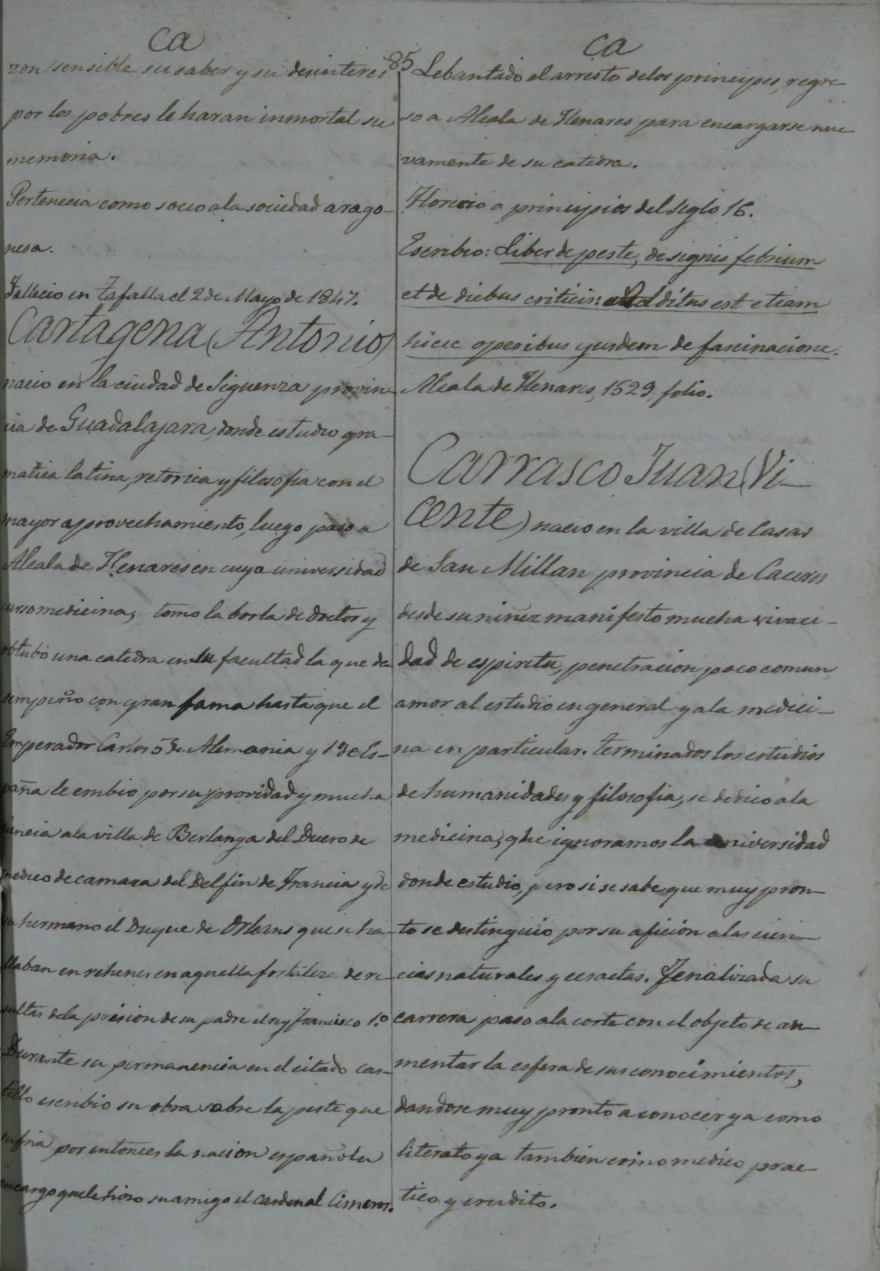 Ca
85
zon sensible su saber y su desinteres
por los pobres le haran inmortal su
memoria.
Pertenecia como socio a la sociedad arago-
nesa.
Fallecio en Tafalla el 2 de Mayo de 1847.
Cartagena (Antonio)
nacio en la ciudad de Siguenza provin-
cia de Guadalajara, donde estudio gra-
matica latina, retorica y filosofia con el
mayor aprovechamiento, luego paso a
Alcala de Henares en cuya universidad
curso medicina, tomo la borla de doctor y
obtubo una catedra en su facultad la que de
sempeño con gran fama hasta que el
Emperador Carlos 5º de Alemania y 1º de Es-
paña le embio por su providad y mucha
ciencia a la villa de Berlanga del Duero de
medico de camara del Delfin de Francia y de
su hermano el Duque de Orleans que se ha-
llaban en rehenes en aquella fortaleza de re
sultas de la prision de su padre el rey Francisco 1.º
Durante su permanencia en el citado cas-
tillo escribio su obra sobre la peste que
sufria por entonces la nacion española
encargo que le hizo su amigo el cardenal Cisneros.
Ca
Lebantado el arresto de los principes, regre
so a Alcala de Henares para encargarse nue
vamente de su catedra.
Florecio a principios del siglo 16.
Escribio: Liber de peste, de signis febrium
et de diebus criticis additus est etiam
hiecc operibus yusdem de fascinacione.
Alcala de Henares, 1529, folio.
Carrasco Juan (Vi-
cente) nacio en la villa de Casas
de San Millan provincia de Caceres
desde su niñez manifesto mucha vivaci-
dad de espiritu, penetracion poco comun
amor al estudio en general y a la medici-
na en particular. terminados los estudios
de humanidades y filosofia, se dedico a la
medicina, que ignoramos la universidad
donde estudio, pero si se sabe que muy pron-
to se distinguio por su aficion a las cien-
cias naturales y ecsactas. Fenalizada su
carrera paso a la corte con el objeto de au-
mentar la esfera de sus conocimientos,
dandose muy pronto a conocer ya como
literato ya tambien como medico prac-
tico y erudito.